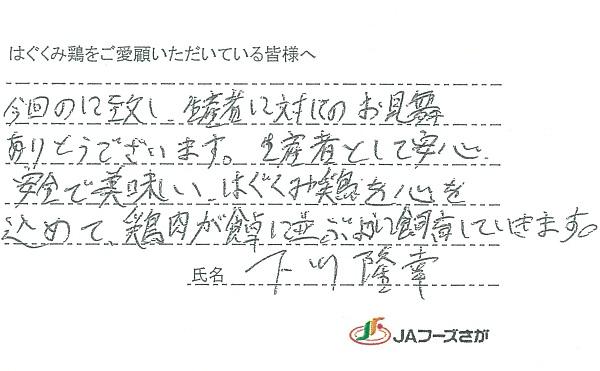 はぐくみ鶏をご愛顧いただいている皆様へ
今回のに致し、生産者に対してのお見舞
ありとうございます。生産者として安心
安全で美味しい、はぐくみ鶏を心を
込めて、鶏肉が食卓に並ぶように飼育していきます。
氏名 下川隆幸
JAフーズさが